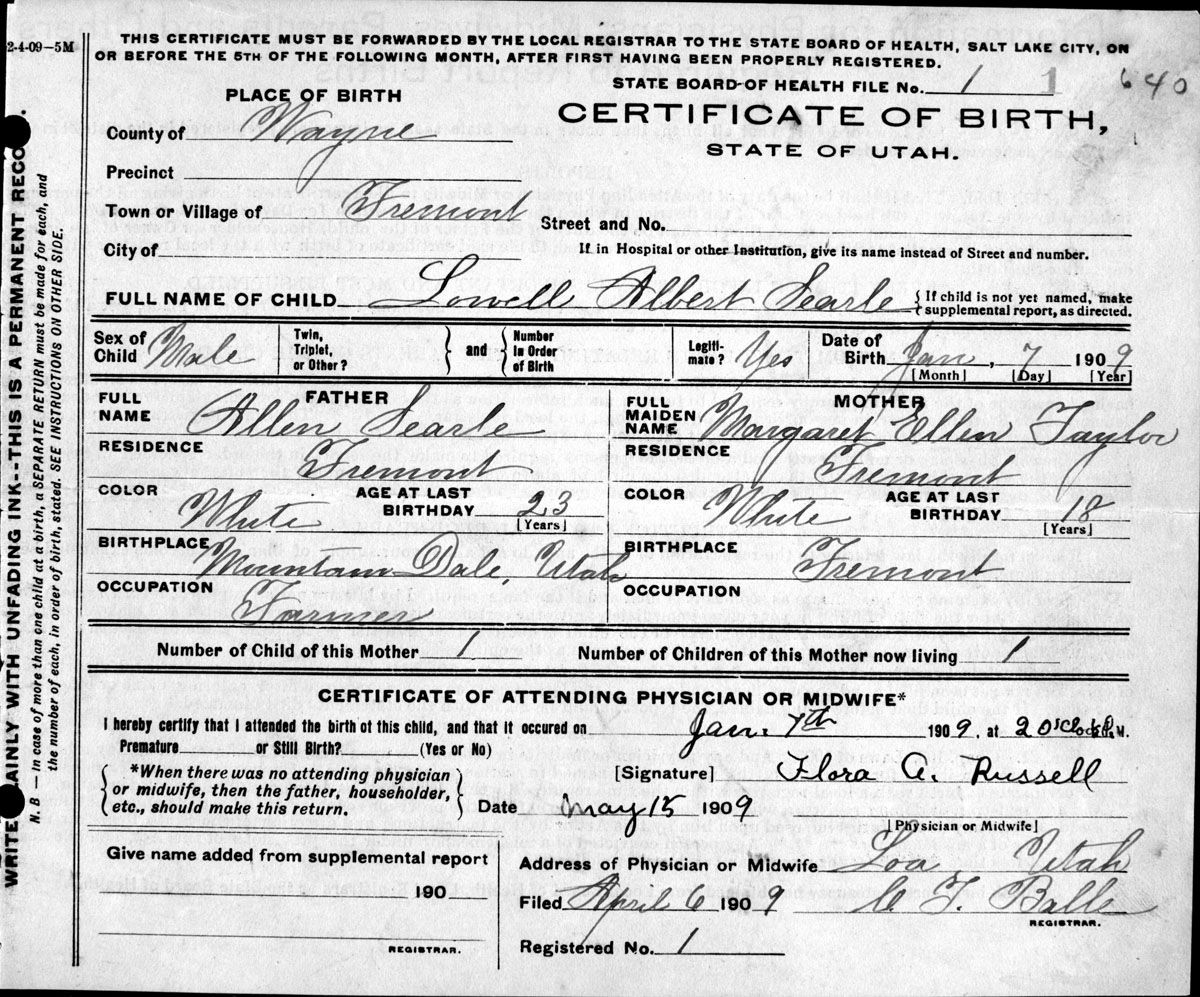 2-4-09—5M
THIS CERTIFICATE MUST BE FORWARDED BY THE LOCAL REGISTRAR TO THE STATE BOARD OF HEALTH, SALT LAKE CITY, ON
OR BEFORE THE 5TH OF THE FOLLOWING MONTH, AFTER FIRST HAVING BEEN PROPERLY REGISTERED.
STATE BOARD OF HEALTH FILE No. 1 1 640
PLACE OF BIRTH
CERTIFICATE OF BIRTH,
STATE OF UTAH.
County of Wayne
Precinct
Town or Village of Fremont Street and No.
City of If in Hospital or other Institution, give its name instead of Street and number.
FULL NAME OF CHILD Lowell Albert Searle { If child is not yet named, make
supplemental report, as directed.
Sex of Child Male Twin, Triplet, or Other? } and { Number in Order of Birth Legiti-mate? Yes Date of Birth Jan, 7 1909
[Month] [Day] [Year]
FATHER
FULL NAME Allen Searle
RESIDENCE Fremont
COLOR White AGE AT LAST BIRTHDAY 23
[Years]
BIRTHPLACE Mountain Dale, Utah
OCCUPATION Farmer
MOTHER
FULL MAIDEN NAME Margaret Ellen Taylor
RESIDENCE Fremont
COLOR White AGE AT LAST BIRTHDAY 18
[Years]
BIRTHPLACE Fremont
OCCUPATION
Number of Child of this Mother 1 Number of Children of this Mother now living 1
CERTIFICATE OF ATTENDING PHYSICIAN OR MIDWIFE*
I hereby certify that I attended the birth of this child, and that it occured on Jan. 7th 1909, at 2 O'Clock P. M.
Premature or Still Birth? (Yes or No)
{ *When there was no attending physician
or midwife, then the father, householder,
etc., should make this return. }
[Signature] Flora A. Russell
Date May 15 1909
[Physician or Midwife]
Give name added from supplemental report
190
REGISTRAR.
Address of Physician or Midwife Loa Utah
Filed April 6 1909 C. F. Balle
REGISTRAR.
Registered No. 1
WRITE LAINLY WITH UNFADING INK--THIS IS A PERMANENT RECO .
N. B — In case of more than one child at a birth, a SEPARATE RETURN must be made for each, and
the number of each, in order of birth, stated. SEE INSTRUCTIONS ON OTHER SIDE.